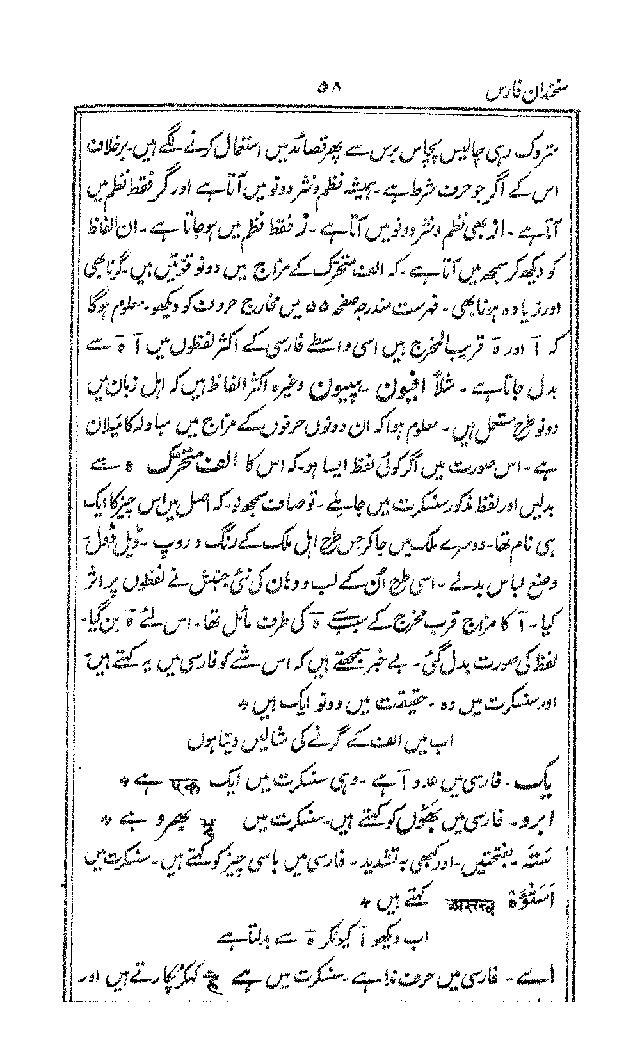 سخندان فارس ۵۸
متروک رہی چالیس پچاس برس سے پھر قصائد میں استعمال کرنے لگے ہیں۔ برخلاف
اس کے اگر جو حرف شرط ہے۔ ہمیشہ نظم و نثر دونو میں آتا ہے اور گر فقط نظم میں
آتا ہے۔ از بھی نظم و نثر دونو میں آتا ہے۔ ز فقط نظم میں ہو جاتا ہے۔ ان الفاظ
کو دیکھ کر سمجھ میں آتا ہے۔ کہ الف متحرک کے مزاج میں دونو قوتیں ہیں۔ گرنا بھی
اور زیادہ ہونا بھی۔ فہرست مندرجہ صفحہ ۵۵ میں مخارج حروف کو دیکھو۔ معلوم ہوگا
کہ آ اور ہ قریب المخرج ہیں اسی واسطے فارسی کے اکثر لفظوں میں آ ہ سے
بدل جاتا ہے۔ مثلاً افیون۔ ہپیون وغیرہ اکثر الفاظ ہیں کہ اہل زبان میں
دونو طرح مستعمل ہیں۔ معلوم ہوا کہ ان دونوں حرفوں کے مزاج میں مبادلہ کا میلان
ہے۔ اس صورت میں اگر کوئی لفظ ایسا ہو۔ کہ اس کا الف متحرک ہ سے
بدلیں اور لفظ مذکور سنسکرت میں جا ملے۔ تو صاف سمجھو۔ کہ اصل میں اس چیز کا ایک
ہی نام تھا۔ دوسرے ملک میں جا کر جس طرح اہل ملک کے رنگ و روپ۔ ڈیل ڈول
وضع لباس بدلے۔ اسی طرح اُن کے لب و دہان کی نئی جنبش نے لفظوں پر اثر
کیا۔ آ کا مزاج قرب مخرج کے سبب سے ہ کی طرف مائل تھا۔ اس لئے ہ بن گیا۔
لفظ کی صورت بدل گئی۔ بے خبر سمجھتے ہیں کہ اس شے کو فارسی میں یہ کہتے ہیں
اور سنسکرت میں وہ۔ حقیقت میں دونو ایک ہیں *
اب میں الف کے گرنے کی مثالیں دیتا ہوں
یک۔ فارسی میں عدد آ ہے۔ وہی سنسکرت میں ایک एक ہے *
ابرو۔ فارسی میں بھوں کو کہتے ہیں۔ سنسکرت میں भ्रू بھرو ہے *
بفتحتیں۔ اور کبھی بہ تشدید۔ فارسی میں باسی چیز کو کہتے ہیں۔ سنسکرت میں
کہتے ہیں *
اب دیکھو آ کیونکر ہ سے بدلتا ہے
اے۔ فارسی میں حرف ندا ہے۔ سنسکرت میں ہے हे کہکر پکارتے ہیں اور